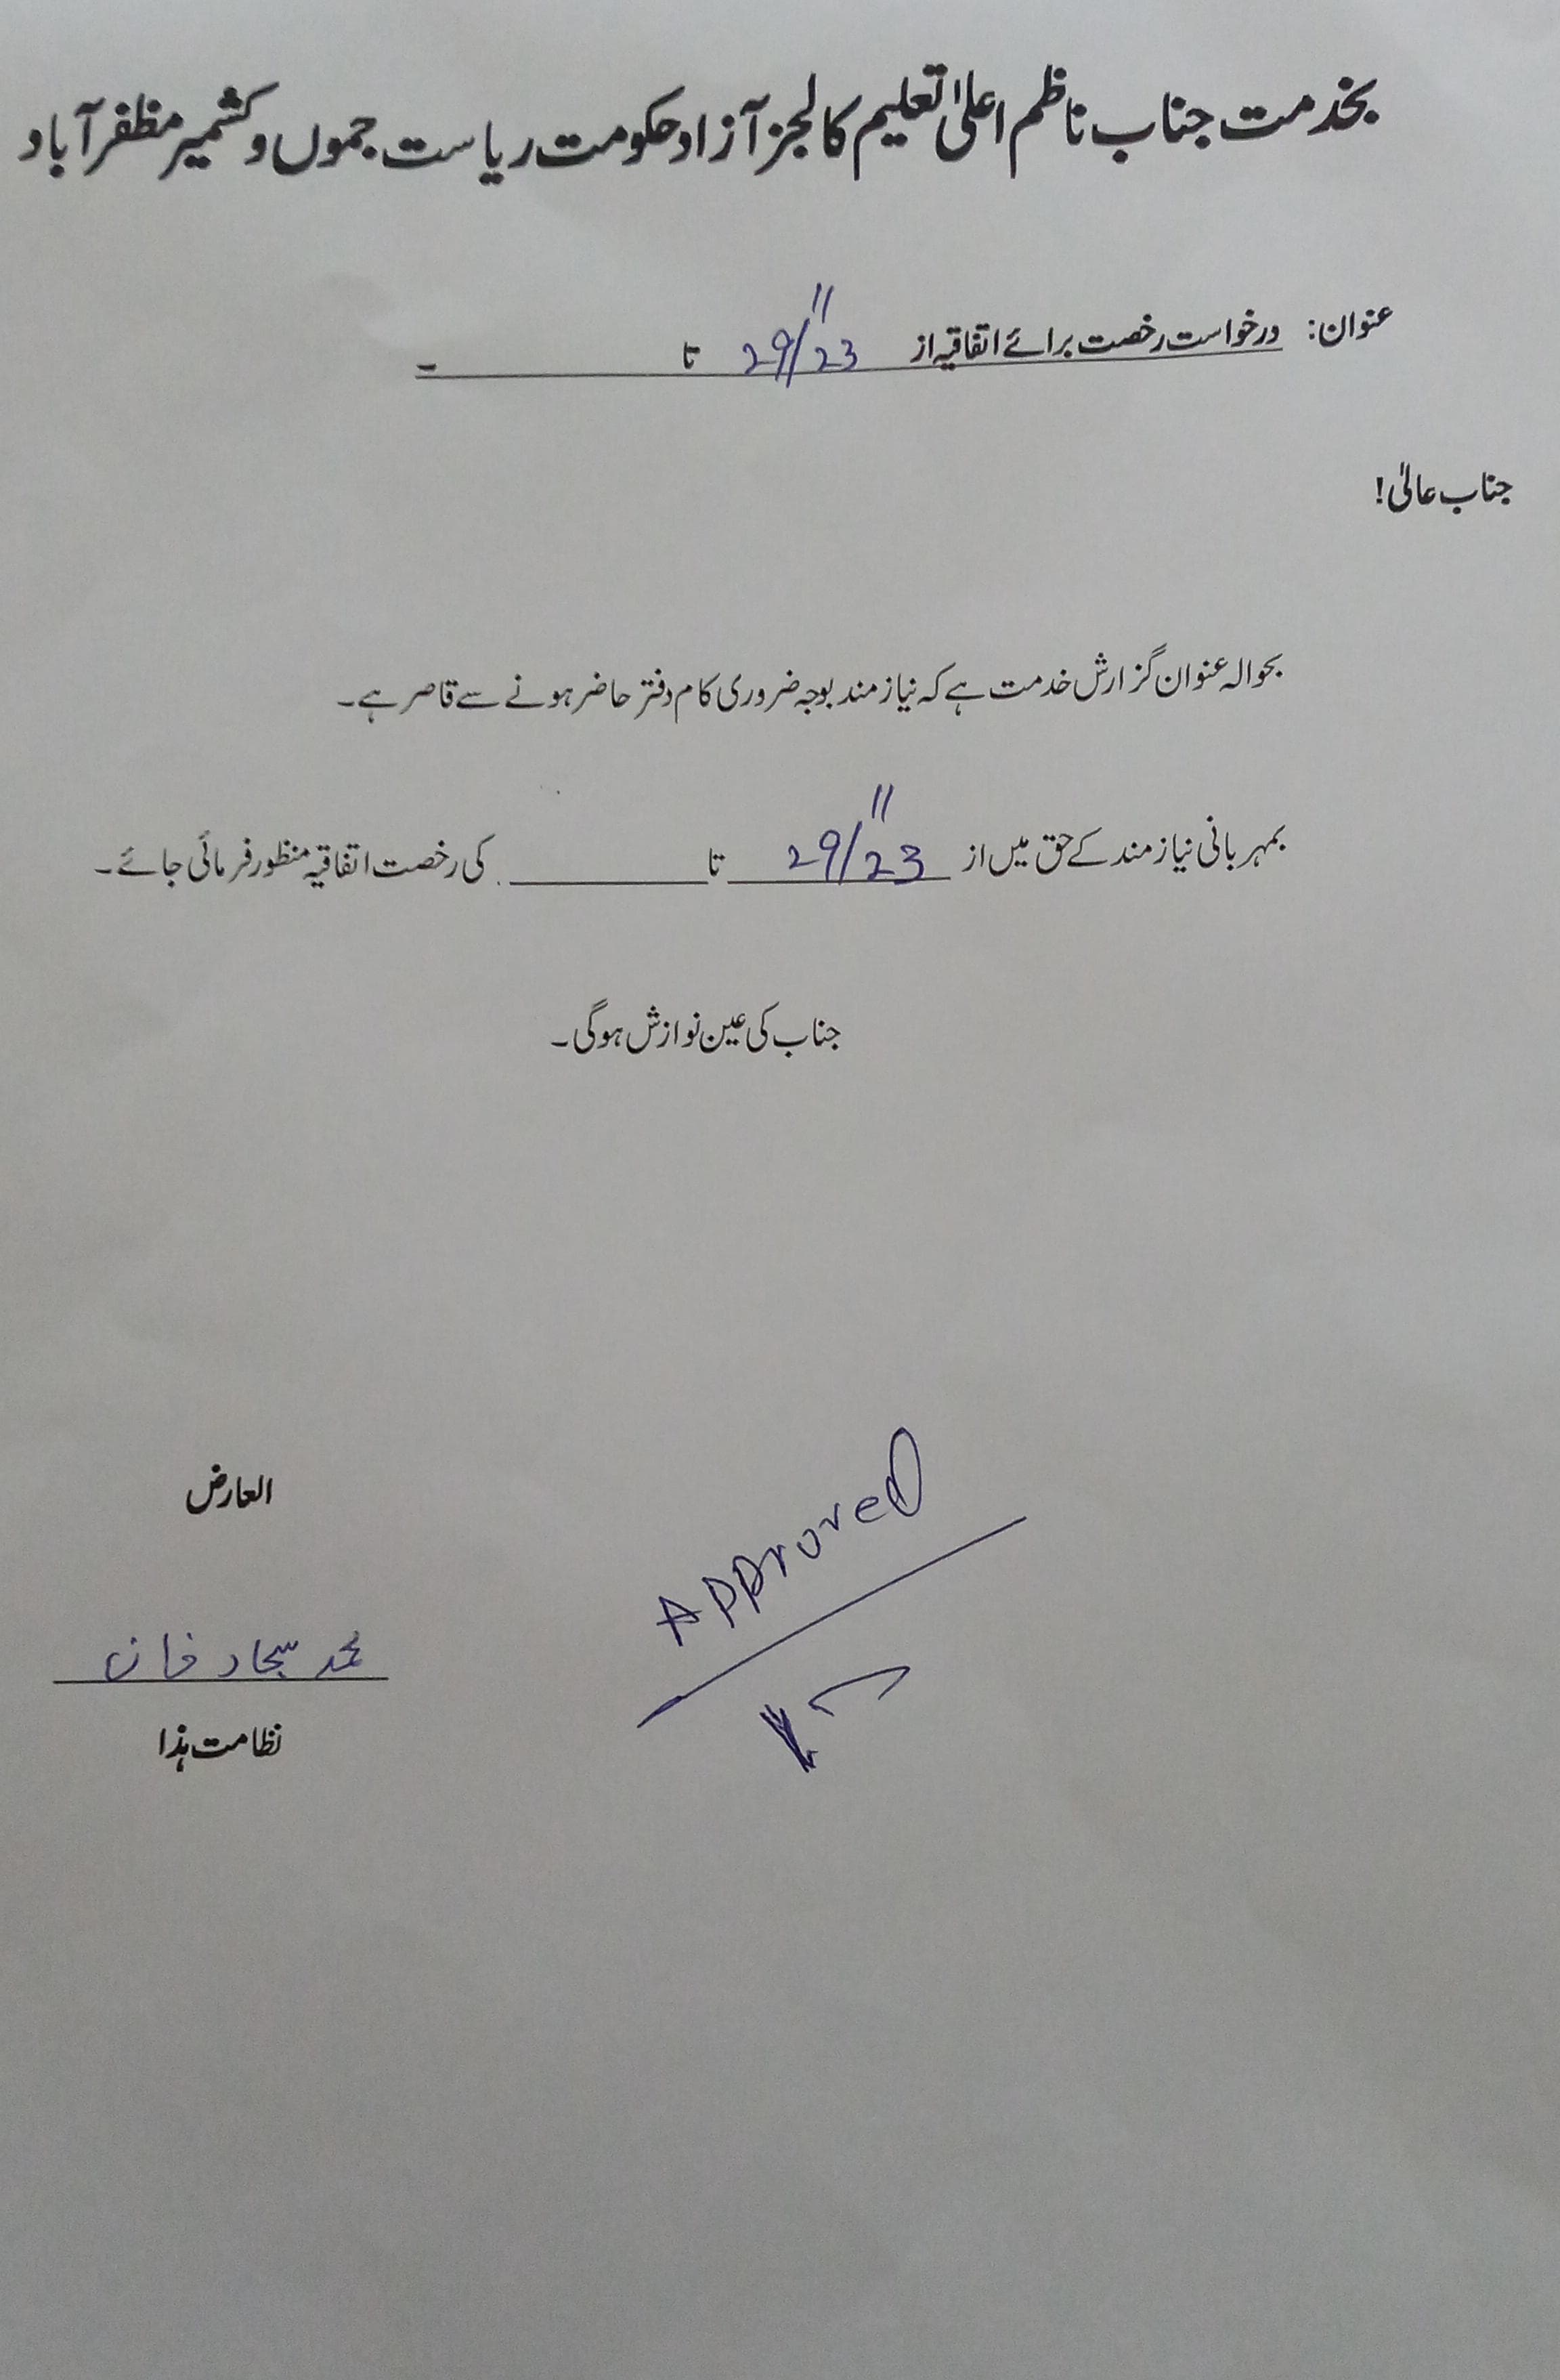 بخدمت جناب ناظم اعلیٰ تعلیم کالجز آزاد حکومت ریاست جموں و کشمیر مظفرآباد
عنوان: درخواست رخصت برائے اتفاقیہ از 29/11 23 تا ۔
جناب عالیٰ!
بحوالہ عنوان گزارش خدمت ہے کہ نیاز مند بوجہ ضروری کام دفتر حاضر ہونے سے قاصر ہے۔
بمہربانی نیاز مند کے حق میں از 29/11 23 تا کی رخصت اتفاقیہ منظور فرمائی جائے۔
جناب کی عین نوازش ہوگی۔
العارض
Approved
محمد سجاد خان
نظامت ہذا